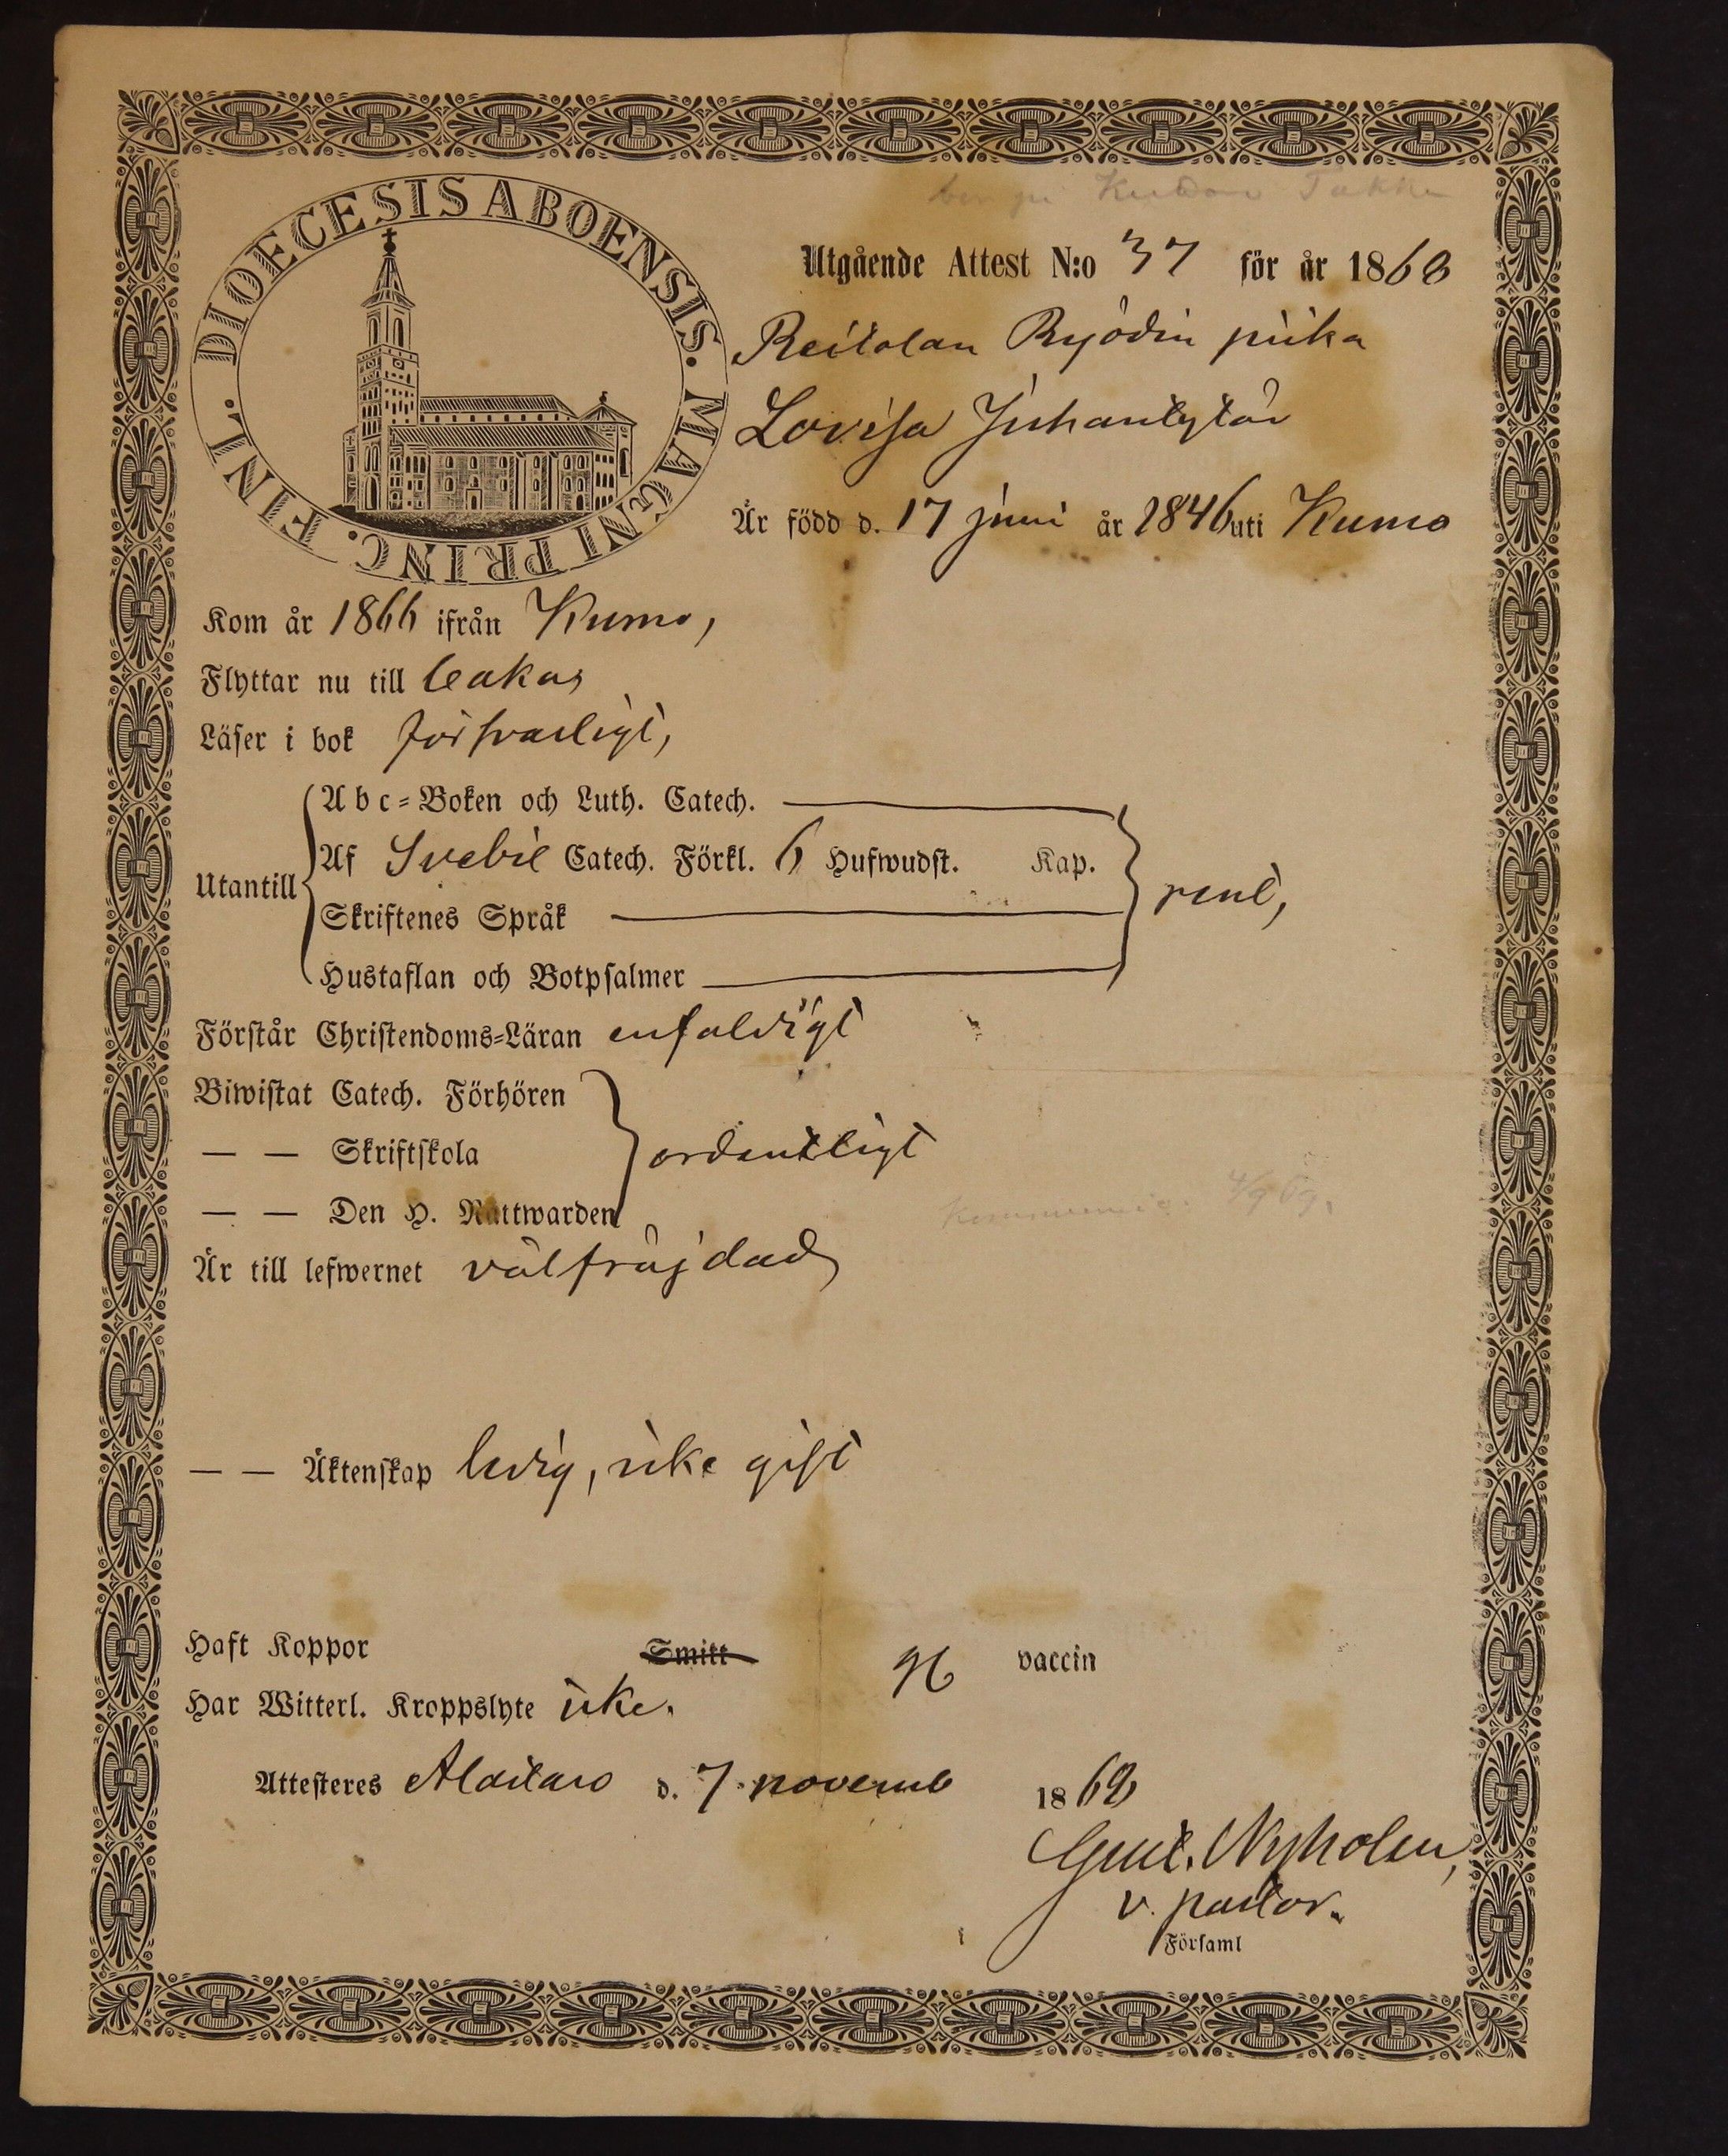 DIOECESIS ABOENSIS. MAGNI PRINC. FINL.
Utgående Attest N:o 37 för år 1868
Reitolan Ryödin piika
Lovisa Juhantytär
Är född d. 17 juni år 1846 uti Kumo
Kom år 1866 ifrån Kumo,
Flyttar nu till
Läser i bok försvarligt,
Utantill
Abc-Boken och Luth. Catech.
Af Svebil Catech. Förkl. 6 Hufwudst. Kap.
Skriftenes Språk
Hustaflan och Botpsalmer
rent,
Förstår Christendoms-Läran enfaldigt
Biwistat Catech. Förhören
— — Skriftskola
— — Den H. Nattwarden
ordentligt
Är till lefwernet välfräjdad
— — Äktenskap ledig, icke gift
Haft Koppor Smitt vaccin
Har Witterl. Kroppslyte icke.
Attesteres Alastaro d. 7 novemb 1868
Gust. Nyholm,
v. pastor.
Församl